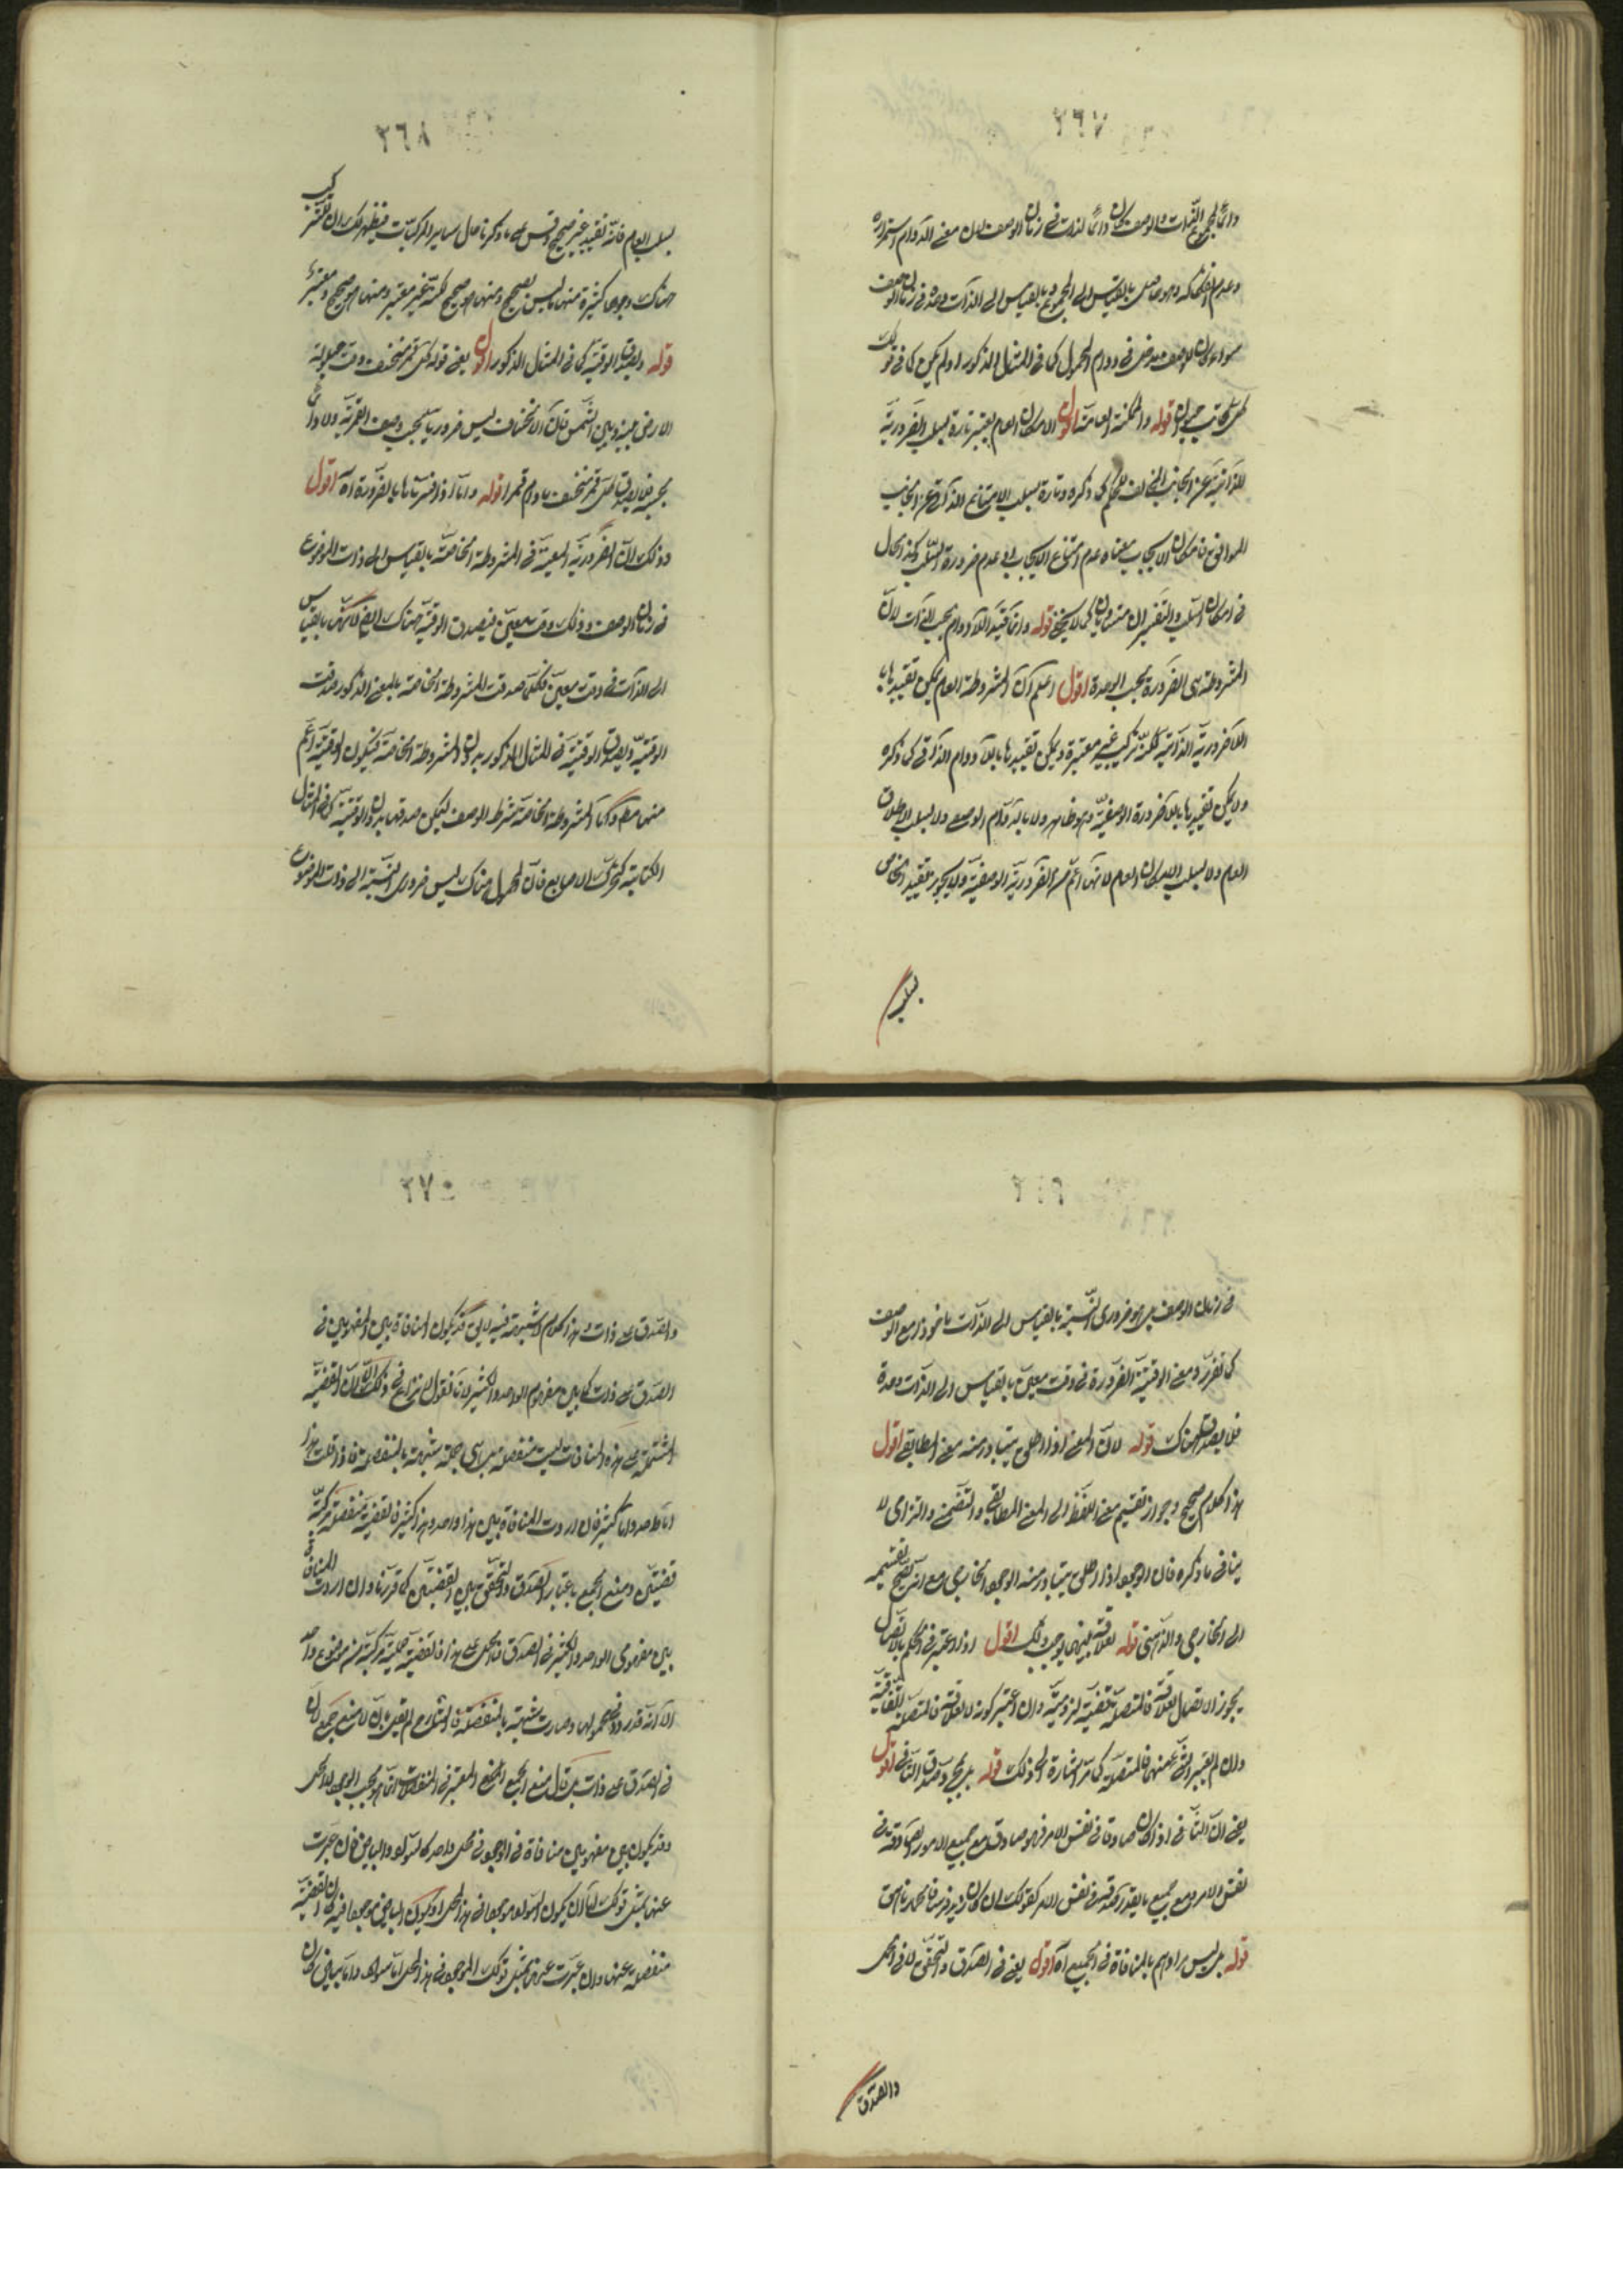 ٢٦٧
دائما لمجموع الذات والوصف كان دائما للذات في زمان الوصف لان معنى الدوام استمراره
وعدم انفكاكه وهو حاصل بالقياس الى المجموع بالقياس الى الذات وحده في زمان الوصف
سواء كان للوصف مدخل في دوام المحمول كما في المثال المذكور او لم يكن كما في قولك
كل كاتب حيوان قوله والممكنة العامة اقول الامكان العام يعتبر تارة بسلب الضرورية
الذاتية عن الجانب المخالف للحكم كما ذكره وتارة بسلب الامتناع الذاتي عن الجانب
الموافق فامكان الايجاب معناه عدم امتناع الايجاب او عدم ضرورة السلب وكذا الحال
في امكان السلب والتفسيران متساويان كما لا يخفى قوله وانما قيد اللادوام بحسب الذات لان
المشروطة هي الضرورة بحسب الوصف اقول اعلم ان المشروطة العامة يمكن تقييدها با
اللاضرورية الذاتية لكنه تركيب غير معتبرة ويمكن تقييدها باللادوام الذاتي كما ذكره
ولا يمكن تقييدها باللاضرورة الوصفية وهو ظاهر ولا باللادوام الوصفي ولا بسلب الاطلاق
العام ولا بسلب الامكان العام لانها اعم من الضرورية الوصفية ولا يجوز تقييد الخاص
بسلب
٢٦٨
بسلب العام فانه تقييد غير صحيح وقس على ما ذكرنا حال ساير المركبات فيظهر لك ان للتركيب
هناك وجوها كثيرة منها ما ليس بصحيح ومنها ما هو صحيح لكنه غير معتبر ومنها ما هو صحيح ومعتبر
قوله ويصدق الوقتية كما في المثال المذكور اقول يعني قوله كل قمر منخسف وقت حيلولة
الارض بينه وبين الشمس فان الانخساف ليس ضروريا بحسب وصف القمرية ولا دائما
بحسبه فلا يصدق كل قمر منخسف ما دام قمرا قوله واما اذا فسرناها بالضرورة اه اقول
وذلك لان الضرورية المعتبرة في المشروطة الخاصة بالقياس الى ذات الموضوع
في زمان الوصف وذلك وقت معين فيصدق الوقتية هناك ايضا لانها بالقياس
الى الذات في وقت معين فكلما صدقت المشروطة الخاصة بالمعنى المذكور صدقت
الوقتية ويصدق الوقتية في المثال المذكور بدون المشروطة الخاصة فيكون الوقتية اعم
منها مطلقا واما المشروطة الخاصة بشرط الوصف فيمكن صدقها بدون الوقتية كما في المثال
الكتابة كتحرك الاصابع فان المحمول هناك ليس ضروري النسبة الى ذات الموضوع
في زمان الوصف بل هو ضروري النسبة بالقياس الى الذات ماخوذا مع الوصف
كما تقرر ومعنى الوقتية الضرورة في وقت معين بالقياس الى الذات وحدة
فلا يصدق هناك قوله لان المعنى اذا اطلق يتبادر منه معنى المطابقي اقول
هذا كلام صحيح وجواز تقسيم معنى اللفظ الى المعنى المطابقي والتضمني والتزامي لا
ينافي ما ذكره فان الوجود اذا اطلق يتبادر منه الوجود الخارجي مع انه يصح تقسيمه
الى الخارجي والذهني قوله لعلاقة بينهما يوجب ذلك اقول اذا اعتبر في الحكم بالاتصال
يجوز الاتصال لعلاقة فالمتصلة قضية لزومية وان اعتبر كونه لا لعلاقة فالمتصلة اتفاقية
وان لم يعتبر شيء منهما فالمتصلة كما مر اشارة الى ذلك قوله بل بمجرد صدق التالي اقول
يعني ان التالي اذا كان صادقا في نفس الامر فهو صادق مع جميع الامور الصادقة في
نفس الامر ومع جميع ما يقدر صدقه في نفس الامر كقولك ان كان زيد فرسا فالحمار ناهق
قوله بل ليس مرادهم بالمنافاة في الجميع اه اقول يعني في الصدق والتحقق لا في الحمل
والصدق
٢٧٥
والصدق على ذات وهذا كلام لا شبهة فيه لا يقال قد يكون المنافاة بين المفهومين في
الصدق على ذات كما بين مفهوم الواحد والكثير لانا نقول لا نزاع في ذلك الا ان القضية
المشتملة على هذه المنافات ليست منفصلة بل هي حملية شبيهة بالمنفصلة فاذا قلت هذا
اما واحد واما كثير فان اردت المنافاة بين هذا واحد وهذا كثير فالقضية منفصلة مركبة
قضيتين ومنع الجمع باعتبار الصدق والتحقق بين القضيتين كما قررنا وان اردت المنافاة
بين مفهومي الواحد والكثير في الصدق والحمل على هذا فالقضية حملية مركبة من موضوع واحد
الا انه قد ردد محمولها وصارت شبيهة بالمنفصلة فالشارح لم يقل بان لا منع جمع
في الصدق على ذات بل قال منع الجمع المعتبر في المنفصلات انما هو بحسب الوجود لا الحمل
وقد يكون بين مفهومين منافاة في الوجود في محل واحد كالسواد والبياض فان عبرت
عنها بمثل قولك اما ان يكون السواد موجودا في هذا المحل او يكون البياض موجودا فيه كان القضية
منفصلة عنها وان عبرت عنها بمثل قولك الموجود في هذا المحل اما سواد واما بياض كان